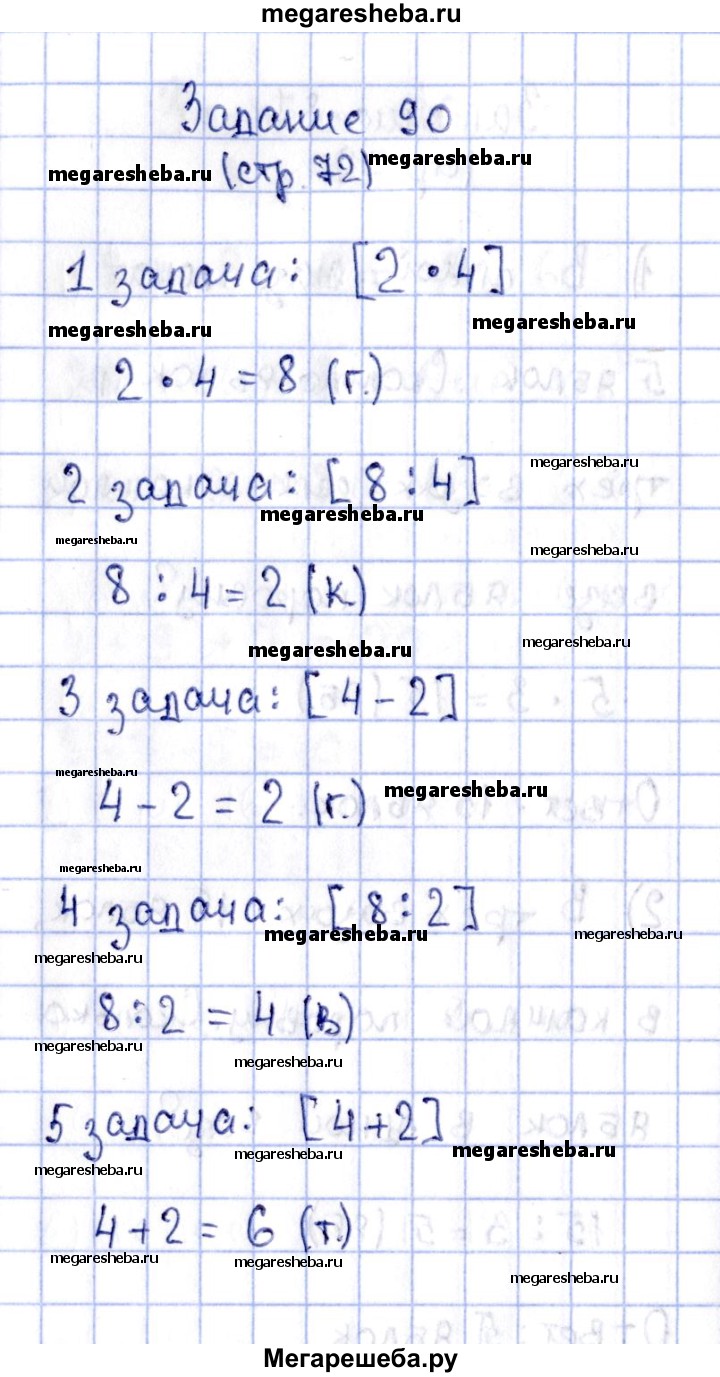 megaresheba.ru
Задание 90
megaresheba.ru (стр. 72) megaresheba.ru
1 задача: [2 · 4]
megaresheba.ru megaresheba.ru
2 · 4 = 8 (г.)
megaresheba.ru
2 задача: [8 : 4]
megaresheba.ru
megaresheba.ru megaresheba.ru
8 : 4 = 2 (к)
megaresheba.ru megaresheba.ru
3 задача: [4 - 2]
megaresheba.ru
4 - 2 = 2 (г.) megaresheba.ru
megaresheba.ru
4 задача: [8 : 2]
megaresheba.ru megaresheba.ru
megaresheba.ru
8 : 2 = 4 (в)
megaresheba.ru megaresheba.ru
5 задача: [4 + 2]
megaresheba.ru megaresheba.ru
megaresheba.ru
4 + 2 = 6 (т.)
megaresheba.ru megaresheba.ru
megaresheba.ru
Мегарешеба.ру